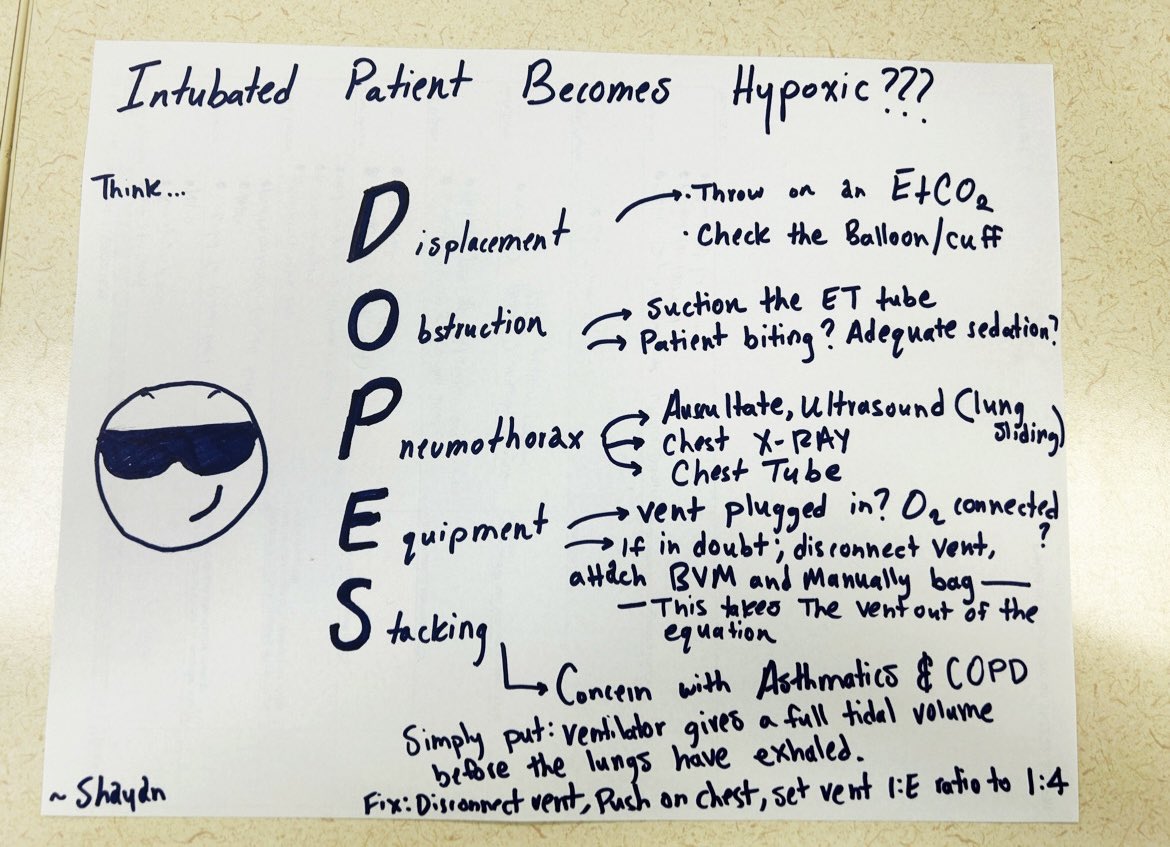 Intubated Patient Becomes Hypoxic???
Think...
Displacement
• Throw on an EtCO2
• Check the Balloon/cuff
Obstruction
Suction the ET tube
Patient biting? Adequate sedation?
Pneumothorax
Auscultate, Ultrasound (lung sliding)
Chest X-RAY
Chest Tube
Equipment
Vent plugged in? O2 connected?
If in doubt; disconnect vent,
attach BVM and Manually bag —
— This takes The vent out of the
equation
Stacking
Concern with Asthmatics & COPD
Simply put: ventilator gives a full tidal volume
before the lungs have exhaled.
Fix: Disconnect vent, Push on chest, set vent I:E ratio to 1:4
~ Shayan